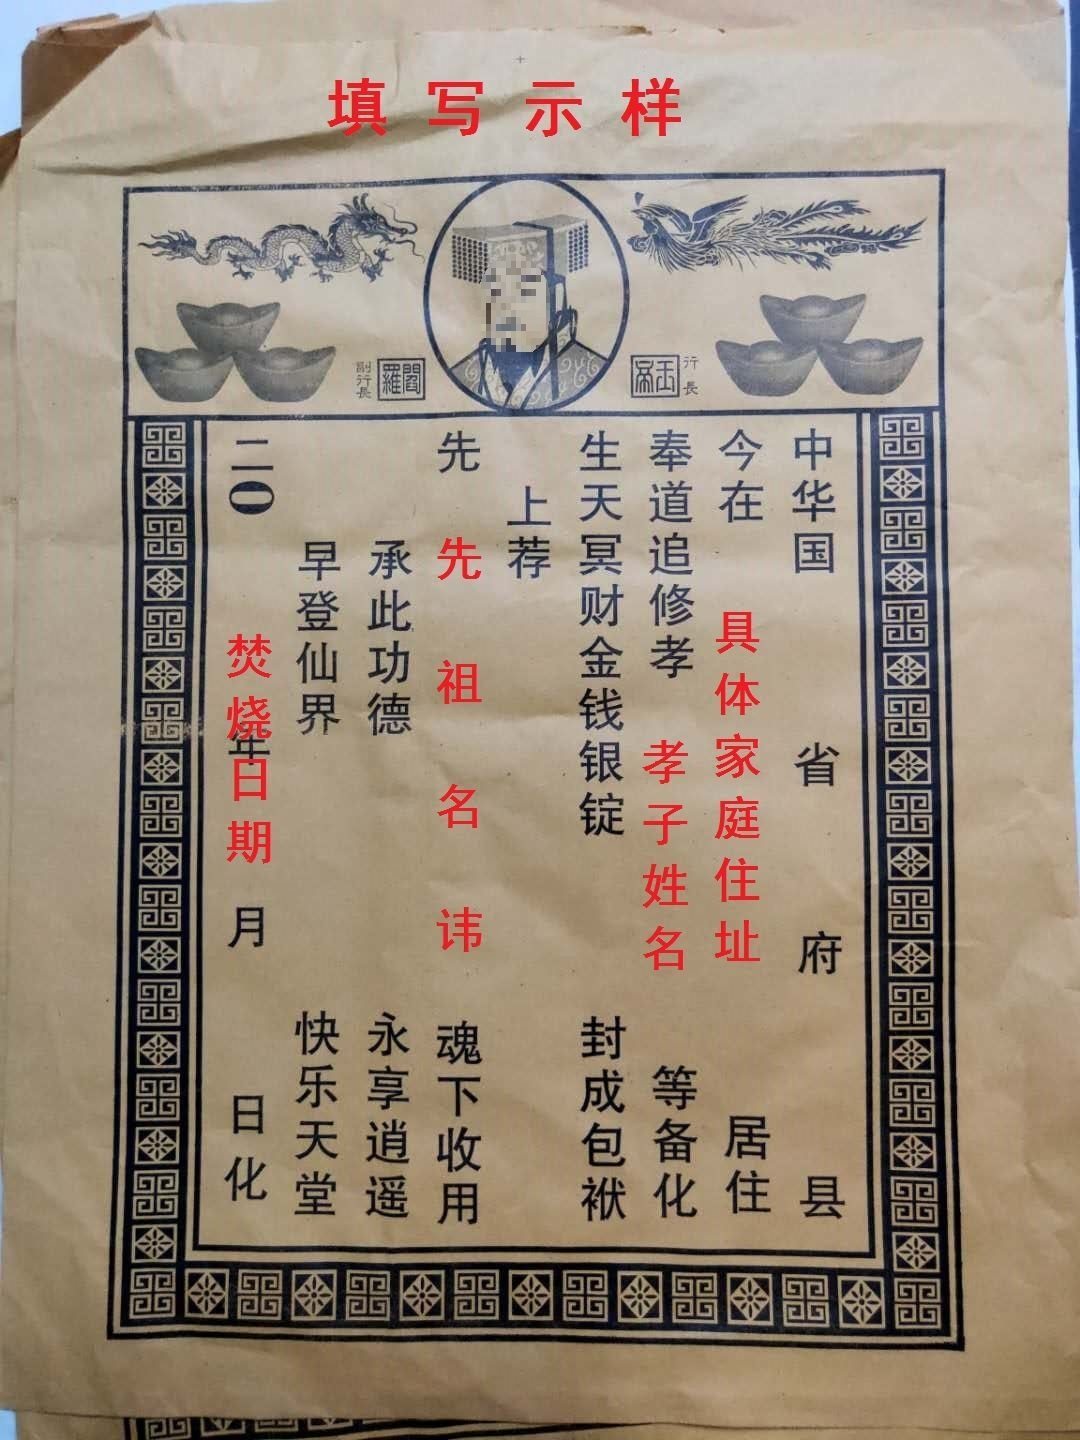 填写示样
行長
玉帝
閻羅
副行長
中华国 省 府 县
今在 具体家庭住址 居住
奉道追修孝 孝子姓名 等备化
生天冥财金钱银锭 封成包袱
上荐
先 先祖名讳 魂下收用
承此功德 永享逍遥
早登仙界 快乐天堂
二0 焚烧日期 年 月 日化